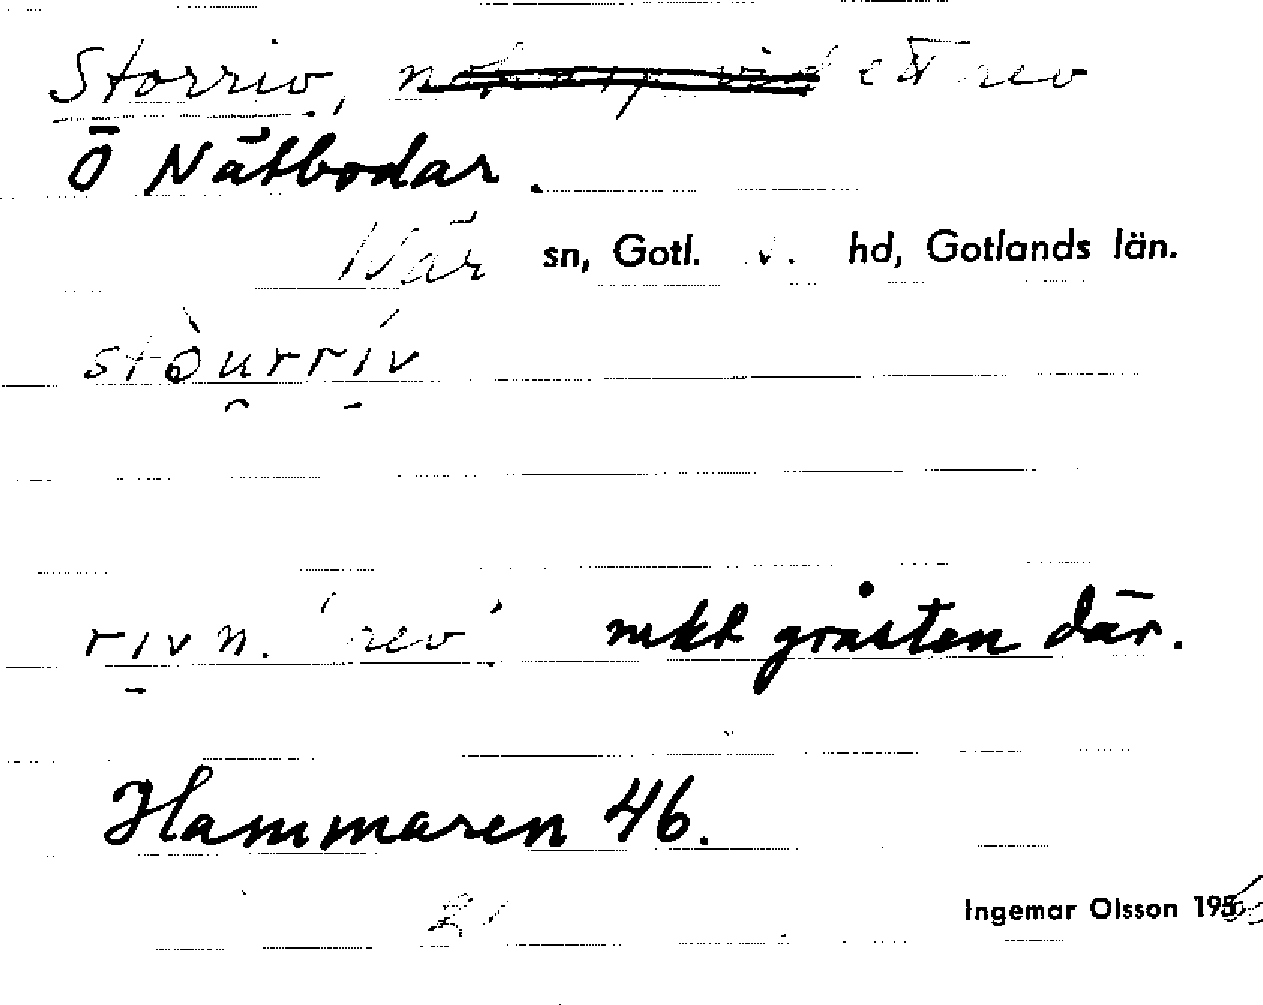 Storriv, ett rev
Ö Nätbodar.
När sn, Gotl. hd, Gotlands län.
stòurrív
rivn. 'rev' mkt gråsten där.
Hammaren 46.
Ingemar Olsson 195